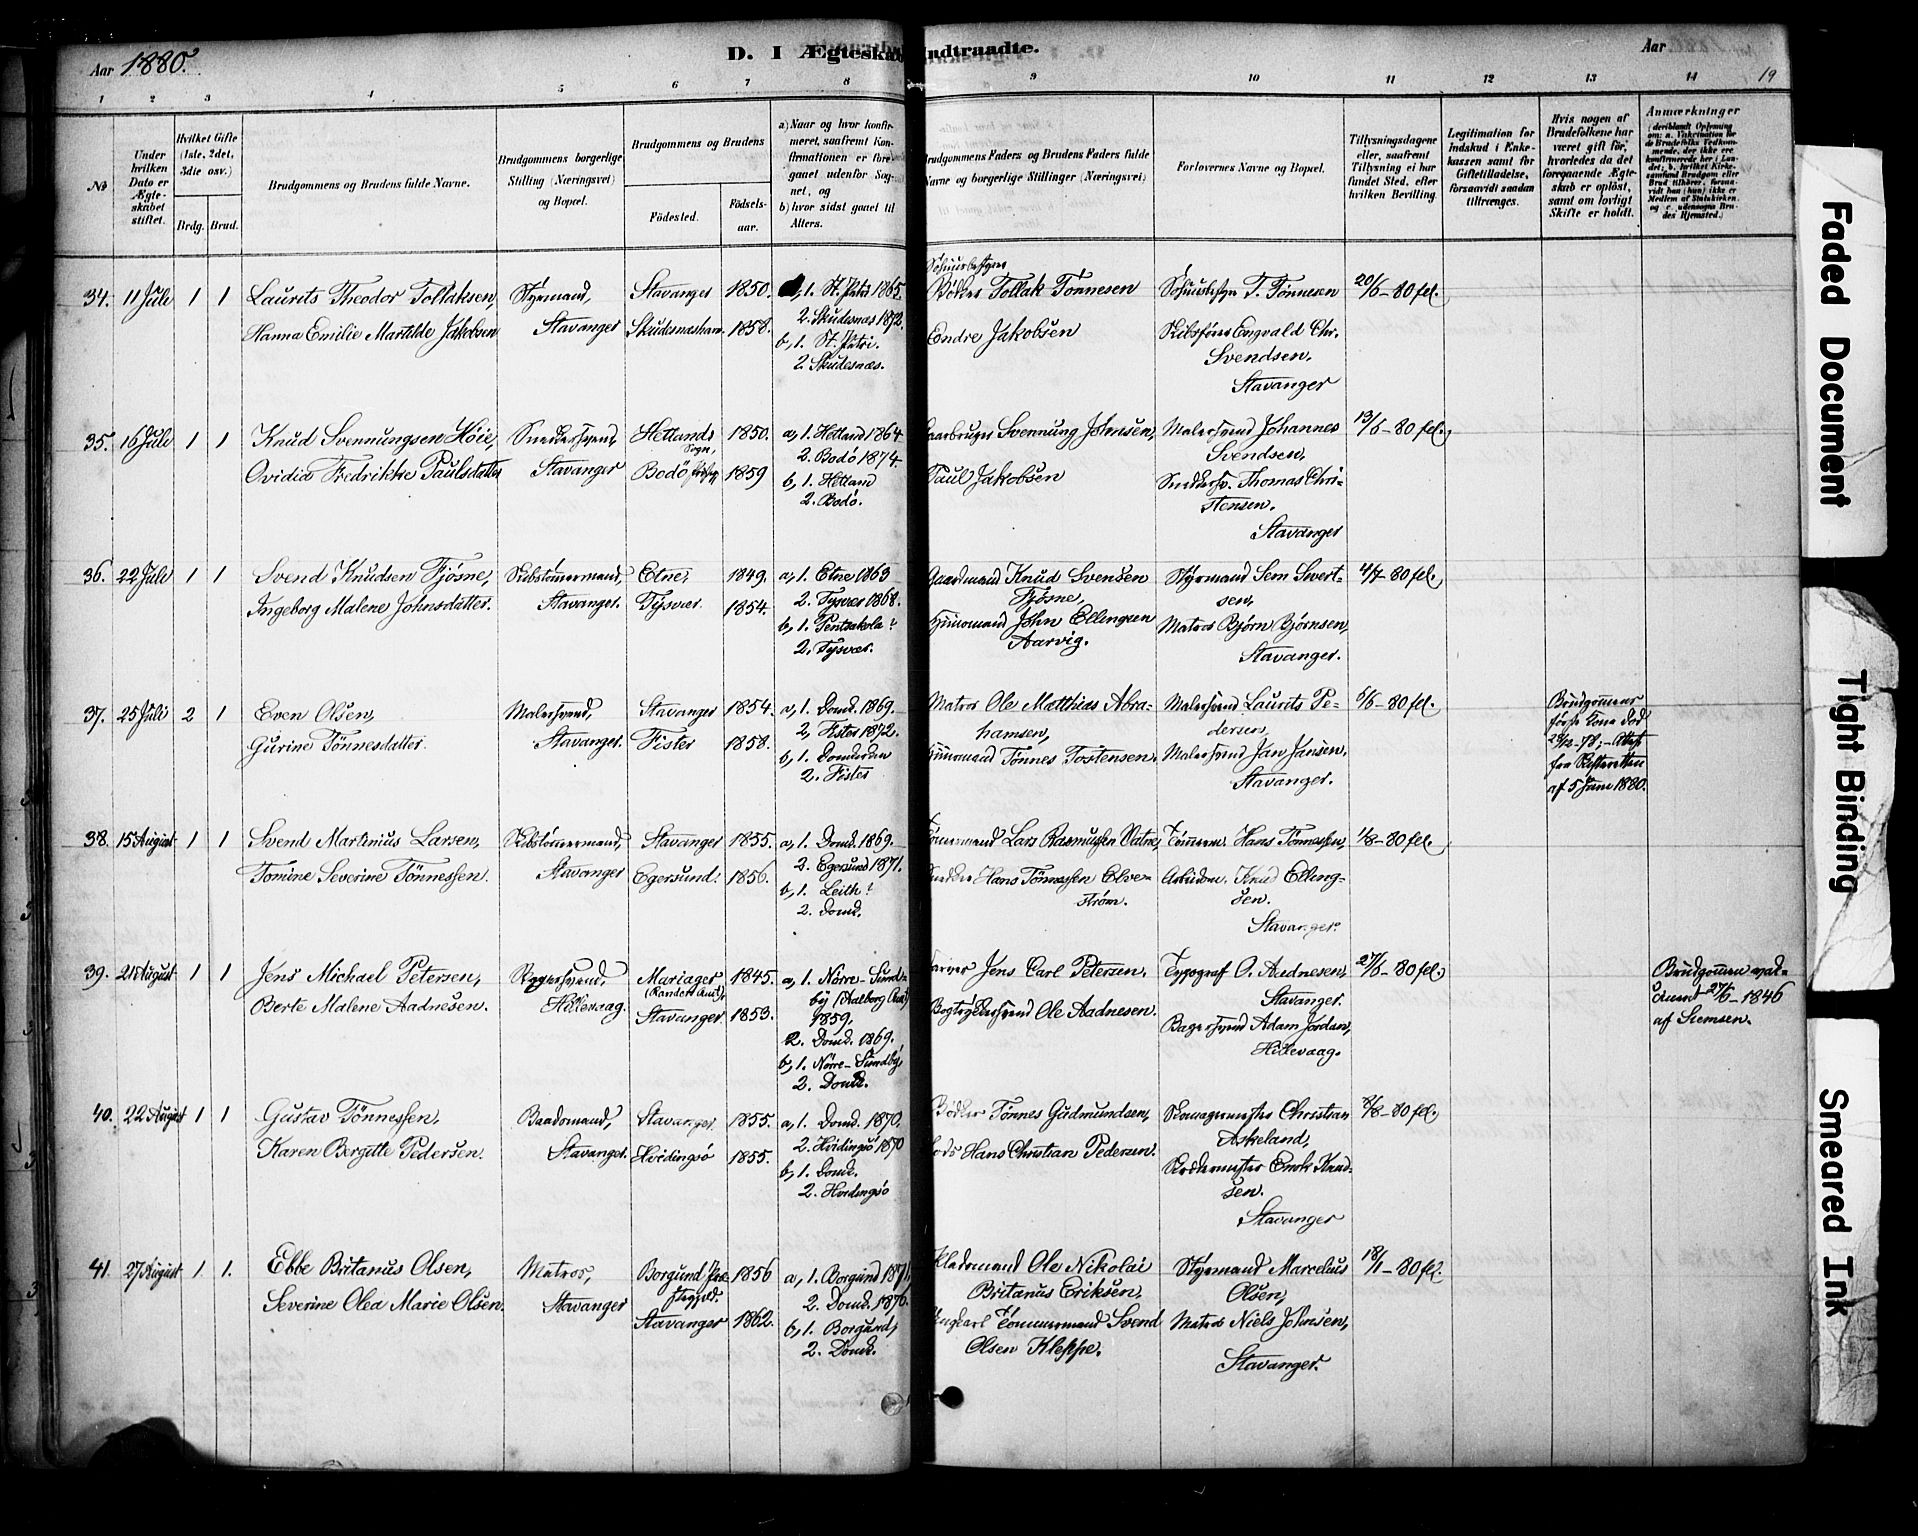 Aar 1880.
D. I Ægteskab Indtraadte.
Aar
19
1 2 3 4 5 6 7 8 9 10 11 12 13 14
No
Under hvilken Dato er Ægteskabet stiftet.
Hvilket Gifte (1ste, 2det, 3die osv.)
Brdg. Brud.
Brudgommens og Brudens fulde Navne.
Brudgommens borgerlige Stilling (Næringsvei) og Bopæl.
Brudgommens og Brudens
Fødested.
Fødselsaar.
a) Naar og hvor konfirmeret, saafremt Konfirmationen er foregaaet udenfor Sognet, og
b) hvor sidst gaaet til Alters.
Brudgommens Faders og Brudens Faders fulde Navne og borgerlige Stillinger (Næringsvei)
Forlovernes Navne og Bopæl.
Tillysningsdagene eller, saafremt Tillysning ei har fundet Sted, efter hvilken Bevilling.
Legitimation for Indskud i Enkekassen samt for Giftetilladelse, forsaavidt saadan tiltrænges.
Hvis nogen af Brudefolkene har været gift før, hvorledes da det foregaaende Ægteskab er opløst, samt om lovligt Skifte er holdt.
Anmærkninger
34. 11 Juli 1 1
Laurits Theodor Tollaksen,
Hanna Emilie Martilde Jakobsen
Styrmand,
Stavanger
Stavanger 1850.
Skudesnæshavn. 1858.
a, 1. St. Petri 1865.
2. Skudesnæs 1872.
b, 1. St. Petri.
2. Skudesnæs.
Bødker Tollak Tønnesen
Endre Jakobsen
T. Tønnesen
Skibsfører Engvald Chr.
Svendsen.
Stavanger
20/6-80 fel.
35. 16 Juli 1 1
Knud Svennungsen Høie,
Ovidia Fredrikke Paulsdatter
Snedkersvend,
Stavanger
Hetlands Sogn, 1850.
Bodø 1859
a, 1. Hetland 1864
2. Bodø 1874.
b, 1. Hetland
2. Bodø.
Gaardbruger Svennung Johnsen,
Paul Jakobsen
Malersvend Johannes
Svendsen,
Snedkersv. Thomas Chri-
stensen.
Stavanger
13/6-80 fel.
36. 22 Juli 1 1
Svend Knudsen Fjøsne,
Ingeborg Malene Johnsdatter.
Skibstømmermand,
Stavanger.
Etne, 1849.
Tysvær. 1854.
a, 1. Etne 1863
2. Tysvær 1868.
b, 1. Pentsakola?
2. Tysvær.
Gaardmand Knud Svensen
Fjøsne,
Huusmand John Ellingsen
Aarvig.
Styrmand Sem Sivert-
sen,
Matros Bjørn Bjørnsen,
Stavanger.
4/7-80 fel.
37. 25 Juli 2 1
Even Olsen,
Gurine Tønnesdatter.
Malersvend,
Stavanger.
Stavanger 1854.
Fister 1858.
a, 1. Domk. 1869.
2, Fister 1872.
b, 1. Domkirken
2. Fister
Matros Ole Matthias Abra-
hamsen,
Huusmand Tønnes Tostensen.
Malersvend Laurits Pe-
dersen,
Malersvend Jan Jansen,
Stavanger.
6/6-80 fel.
Brudgommens
første Kone død
28/12-78; Attest
fra Skifteretten
af 5 Juni 1880.
38. 15 August 1 1
Svend Martinius Larsen,
Tomine Severine Tønnessen.
Skibstømmermand,
Stavanger
Stavanger 1855.
Egersund. 1856.
a, 1. Domk. 1869.
2. Egersund 1871.
b, 1. Leith?
2. Domk.
Tømmermand Lars Rasmussen Vatne,
Snedker Hans Tønnessen Elve-
strøm.
Tømmerm. Hans Tønnessen,
Arbeidsm. Knud Elling-
sen.
Stavanger.
1/8-80 fel.
39. 21 August 1 1
Jens Michael Petersen,
Berte Malene Aadnesen.
Bagersvend,
Hillevaag.
Mariager
(Randers Amt), 1845.
Stavanger 1853.
a, 1. Nörre-Sund-
by (Aalborg Amt)
1859,
2. Domk. 1869.
b, 1. Nörre-Sundby,
2. Domk.
Farver Jens Carl Petersen.
Bogtrykkersvend Ole Aadnesen.
Typograf O. Aadnesen,
Stavanger.
Bagersvend Adam Jordan,
Hillevaag.
27/6-80 fel.
Brudgommen vac-
cineret 27/6-1846
af Siemsen.
40. 22 August 1 1
Gustav Tønnessen,
Karen Bergitte Pedersen.
Baadsmand,
Stavanger.
Stavanger. 1855.
Hvidingsø 1855.
a, 1. Domk. 1870.
2. Hvidingsø 1870
b, 1. Domk.
2. Hvidingsø
Bødker Tønnes Gudmundsen,
Lods Hans Christian Pedersen.
Skomagermester Christian
Askeland,
Snedkermester Enok Knud-
sen.
Stavanger
8/8-80 fel.
41 27 August 1 1.
Ebbe Britanus Olsen,
Severine Olea Marie Olsen.
Matros,
Stavanger
Borgund Præ-
stegjeld. 1856
Stavanger 1862.
a, 1. Borgund 1871,
2. Domk. 1876.
b, 1. Borgund,
2. Domk.
Ole Nikolai
Britanus Eriksen,
Ungkarl Tömmermand Svend
Olsen Kleppe.
Styrmand Marcelius
Olsen,
Matros Niels Johnsen,
Stavanger.
18/1-80 fel.
Faded Document
Tight Binding
Smeared Ink